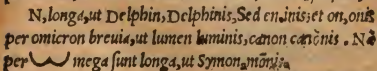 N, longa, ut Delphin, Delphinis, Sed en, inis, et on, onis
per omicron breuia, ut lumen luminis, canon canonis . Nā
per mega ſunt longa, ut Symon, monis,